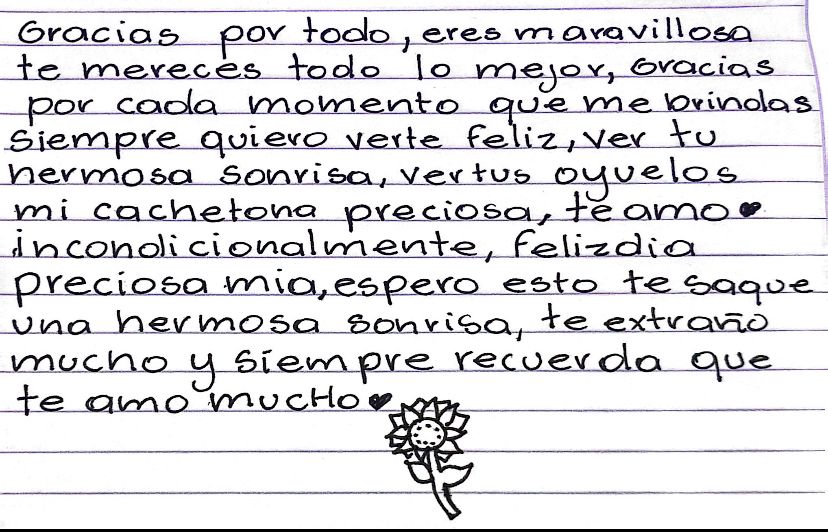 Gracias por todo, eres maravillosa
te mereces todo lo mejor, Gracias
por cada momento que me brindas
siempre quiero verte feliz, ver tu
hermosa sonrisa, ver tus oyuelos
mi cachetona preciosa, te amo ♥
incondicionalmente, feliz dia
preciosa mia, espero esto te saque
una hermosa sonrisa, te extraño
mucho y siempre recuerda que
te amo mucHo ♥